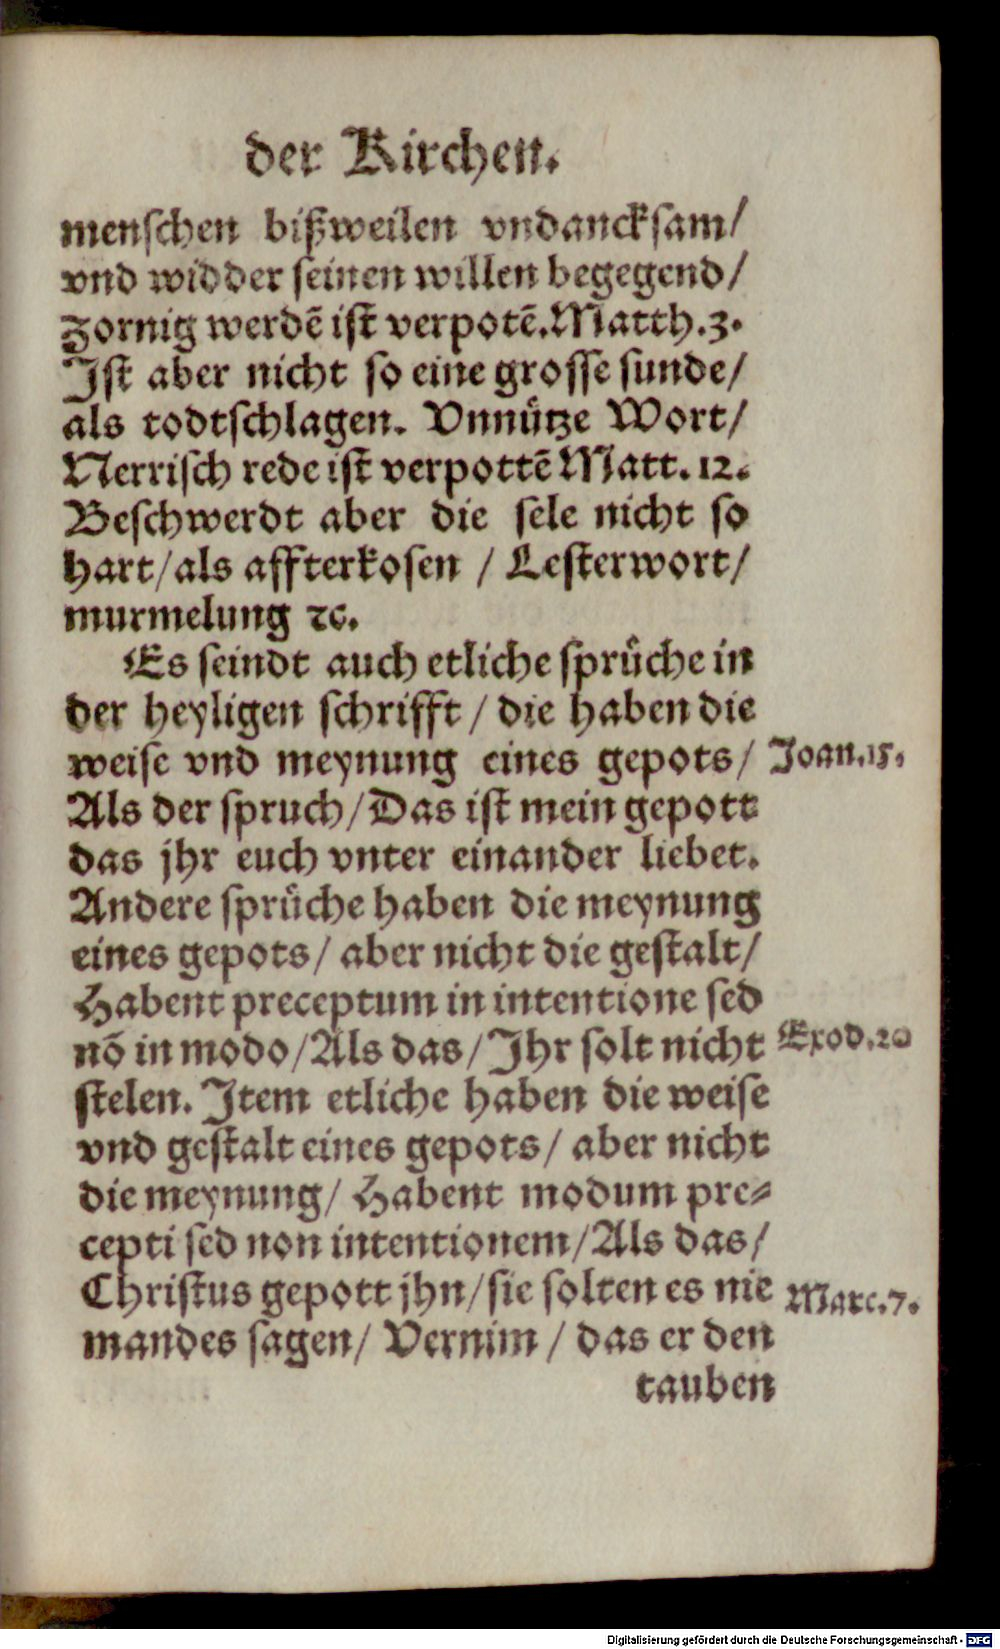 der Kirchen.
menschen bißweilen vndancksam/
vnd widder seinen willen begegend/
zornig werdē ist verpotē. Matth. 3.
Ist aber nicht so eine grosse sunde/
als todtschlagen. Vnnütze Wort/
Nerrisch rede ist verpottē Matt. 12.
Beschwerdt aber die sele nicht so
hart/ als affterkosen / Lesterwort/
murmelung ꝛc.
Es seindt auch etliche sprüche in
der heyligen schrifft / die haben die
weise vnd meynung eines gepots/ Joan. 15.
Als der spruch/ Das ist mein gepott
das jhr euch vnter einander liebet.
Andere sprüche haben die meynung
eines gepots/ aber nicht die gestalt/
Habent preceptum in intentione sed
nō in modo/ Als das/ Ihr solt nicht Exod. 20
stelen. Item etliche haben die weise
vnd gestalt eines gepots/ aber nicht
die meynung/ Habent modum pre⸗
cepti sed non intentionem/ Als das/
Christus gepott jhn/ sie solten es nie Marc. 7.
mandes sagen/ Vernim / das er den
tauben
Digitalisierung gefördert durch die Deutsche Forschungsgemeinschaft - DFG